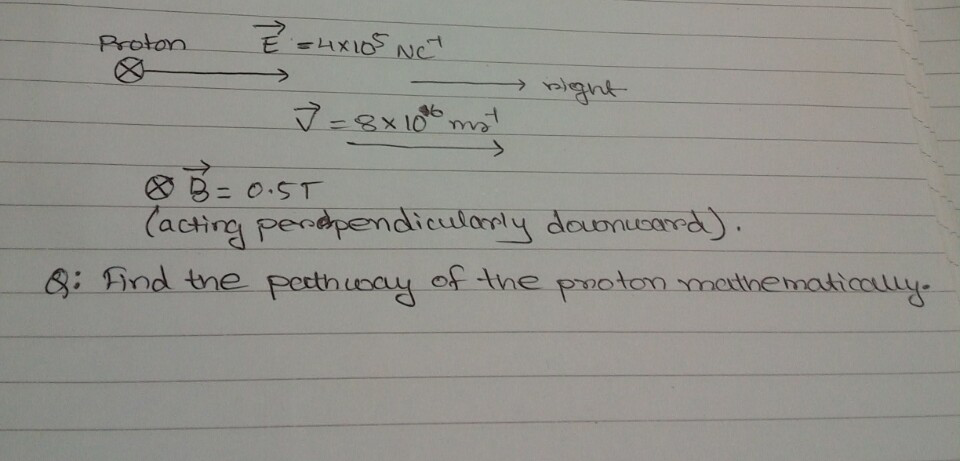 Proton E⃗ = 4×10⁵ NC⁻¹
⊗ → → right
V⃗ = 8×10⁶ ms⁻¹
→
⊗ B⃗ = 0.5T
(acting perdpendicularly downward).
Q: Find the pathway of the proton mathematically.